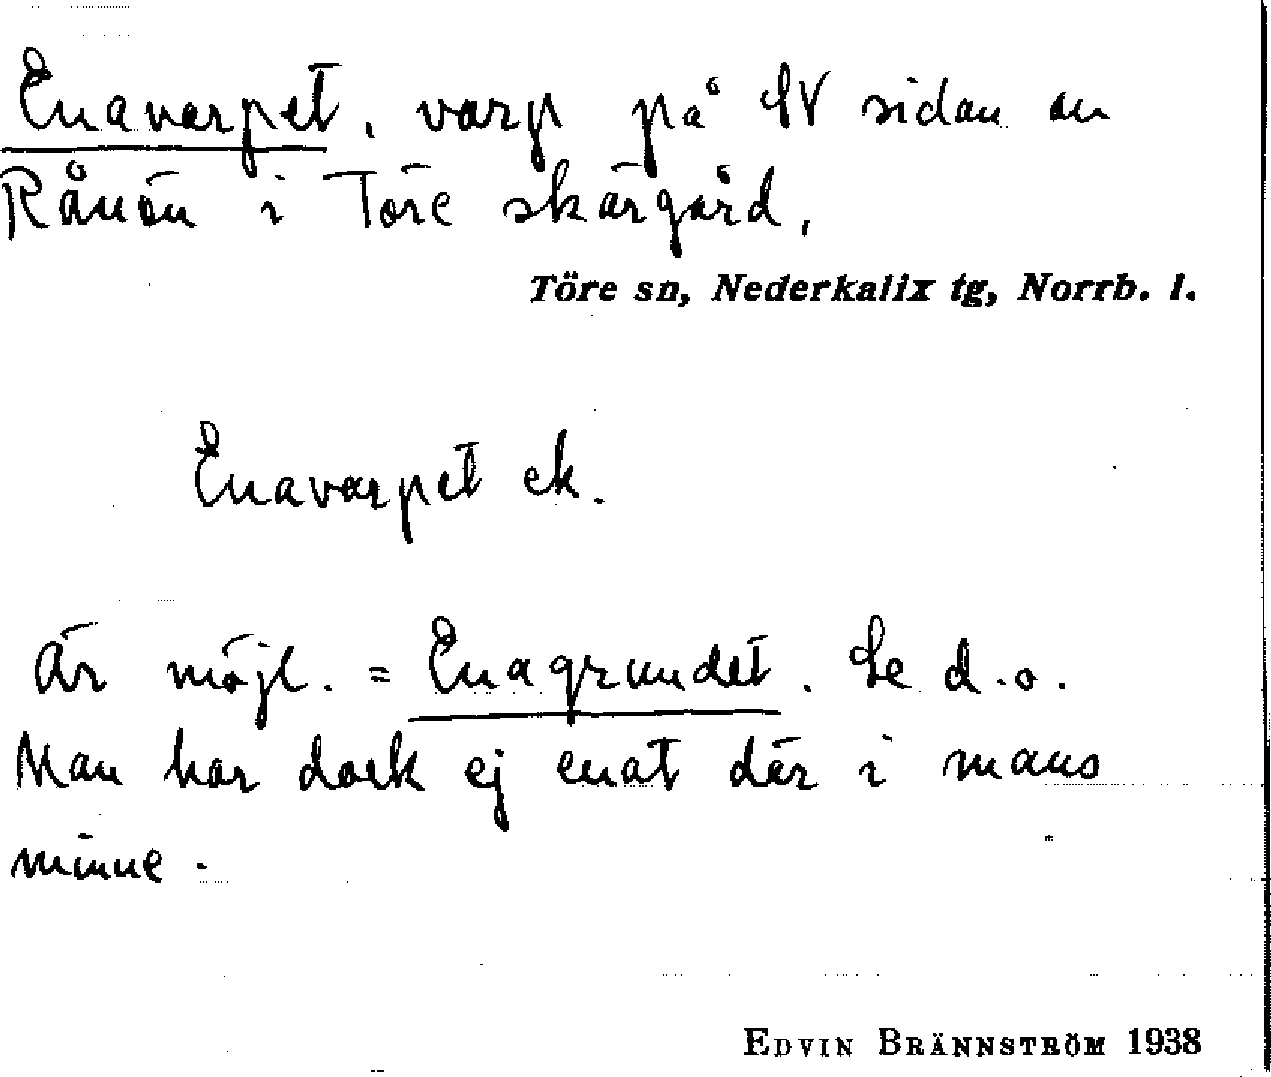 Enavarpet, varp på SV sidan av
Rånön i Töre skärgård,
Töre sn, Nederkalix tg, Norrb. l.
Enavarpet ek.
Är möjl. = Enagrundet. Se d.o.
Man har dock ej enat där i mans
minne.
EDVIN BRÄNNSTRÖM 1938